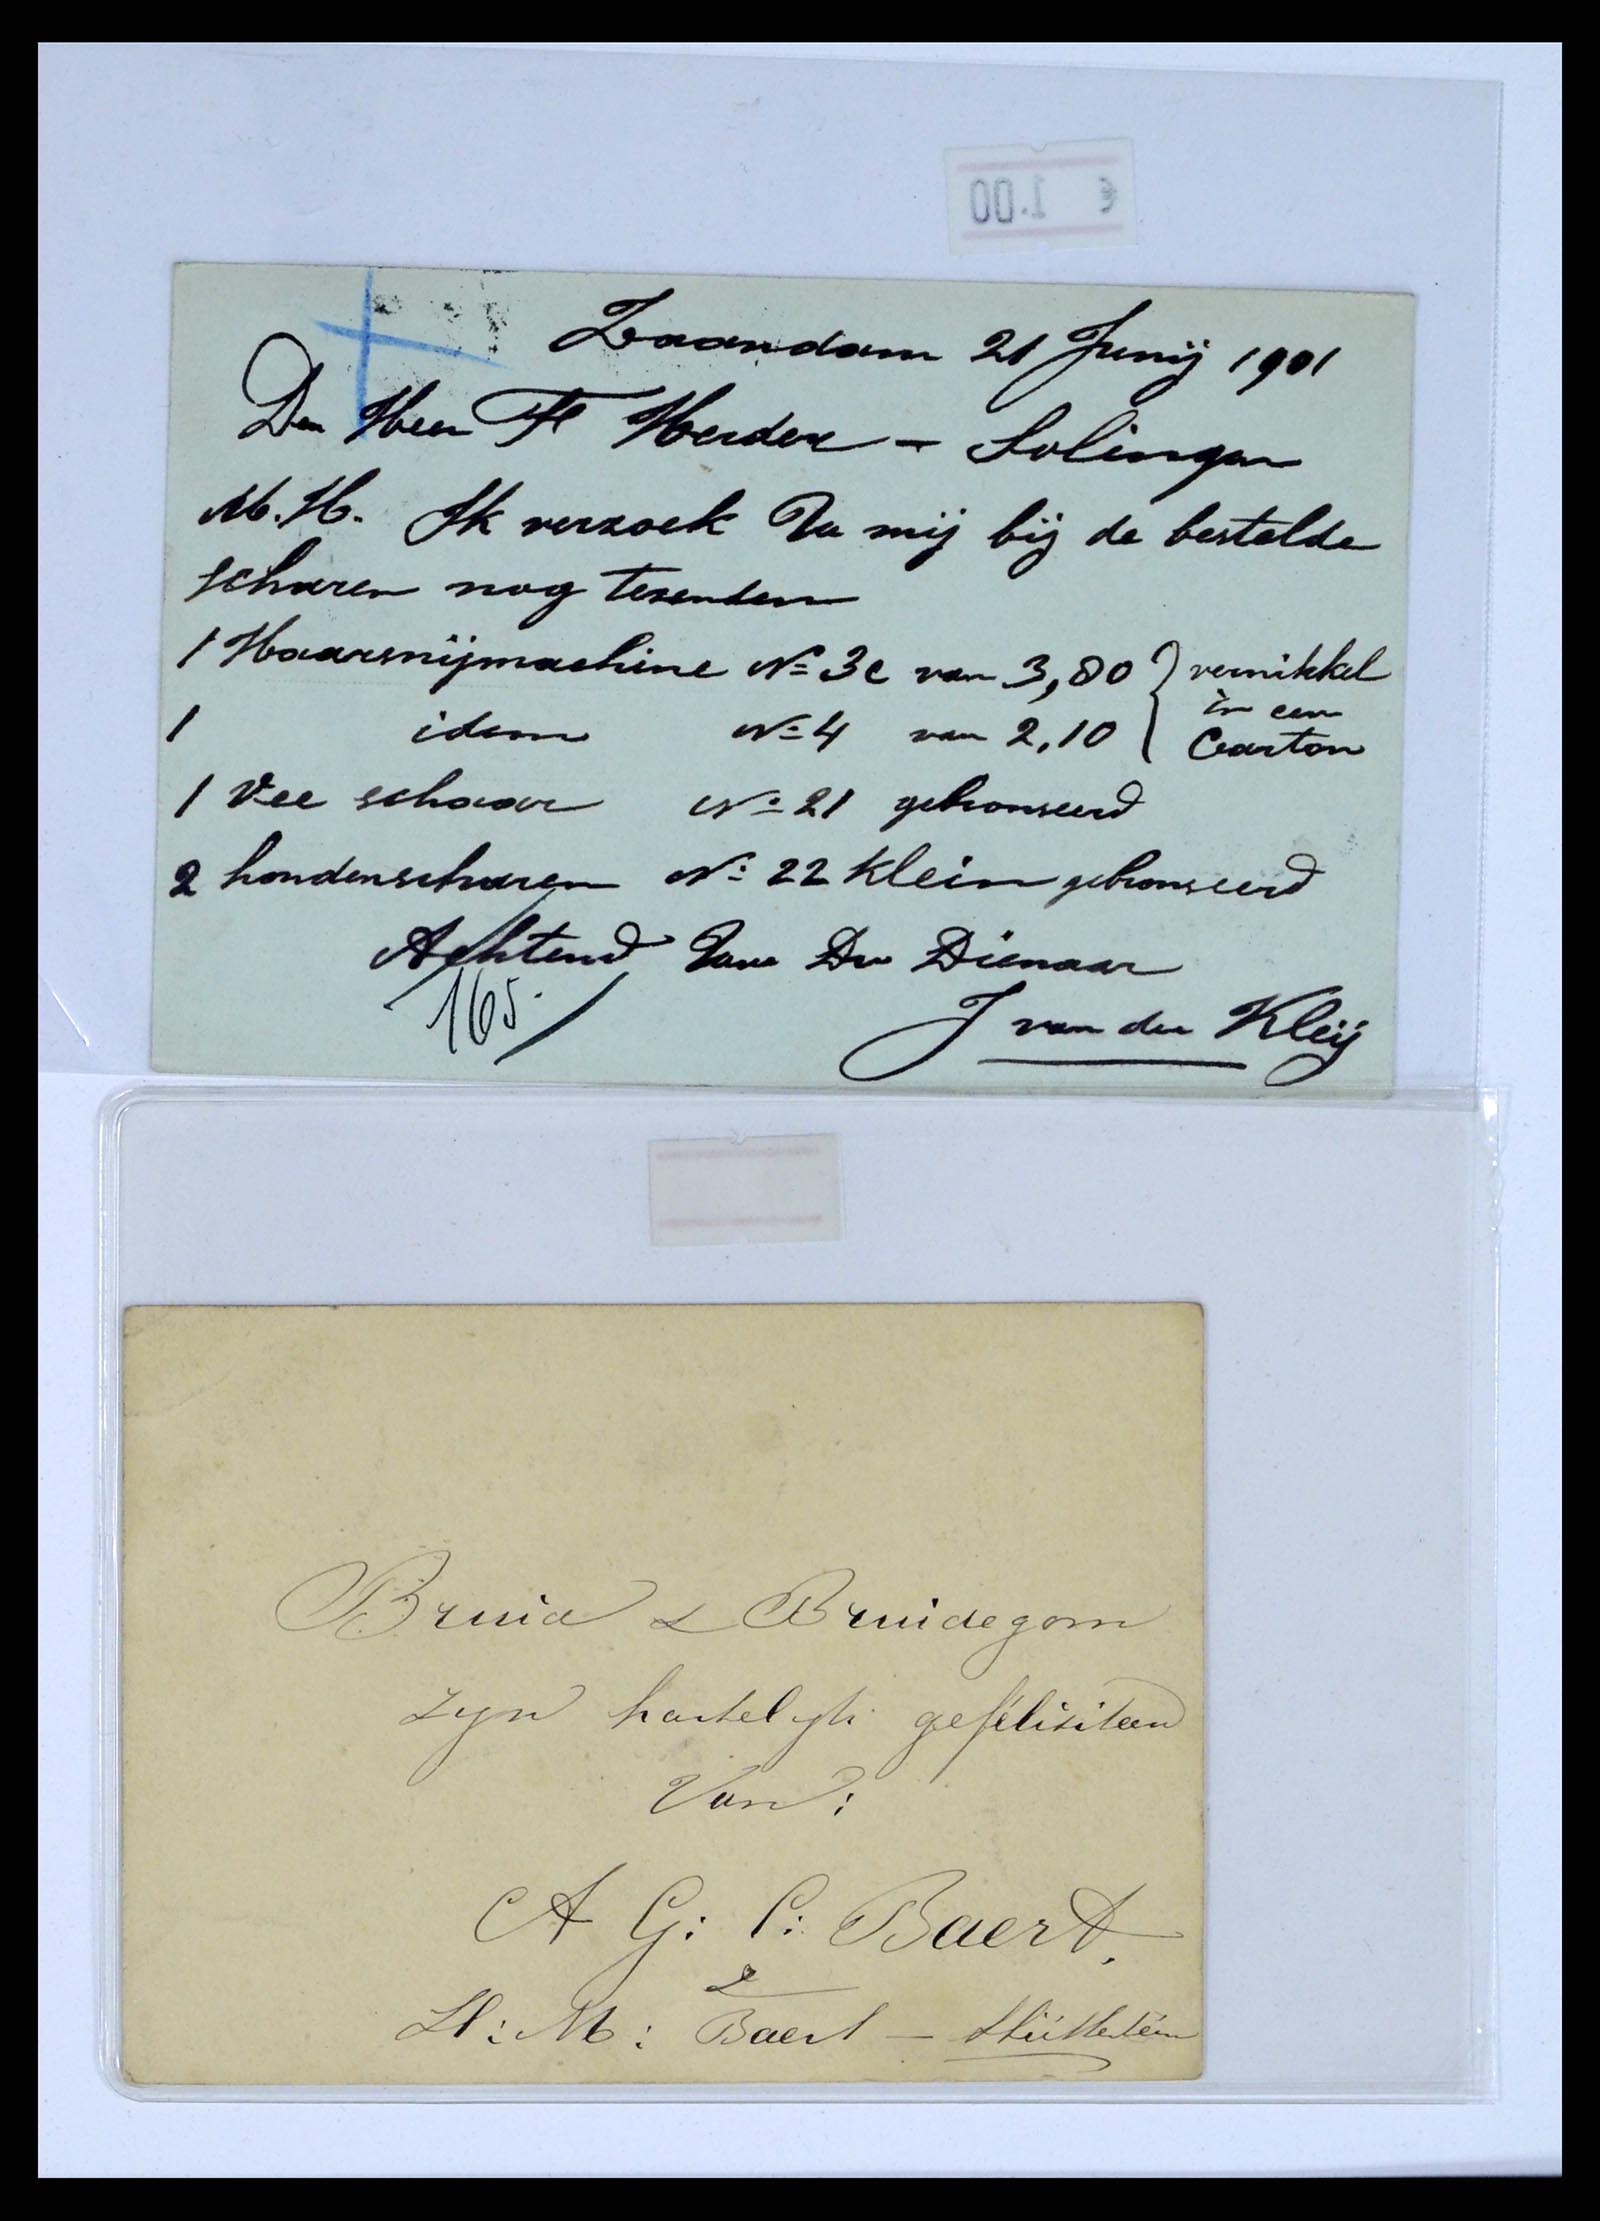 € 1.00
Zaandam 21 Junij 1901
Den Heer Fr Herder – Solingen
M. H. Ik verzoek U mij bij de bestelde
scharen nog tezenden
1 Haarsnijmachine No 3c van 3,80 } vernikkel
in een
1 idem No 4 van 2,10 Carton
1 Vee schaar No 21 gebronseerd
2 hondenscharen No 22 klein gebronseerd
Achtend Uwe Dw Dienaar
165.
J van der Kleij
Bruid & Bruidegom
zyn hartelyk gefélisiteerd
Van:
A G: C: Baert.
&
H: M: Baert –